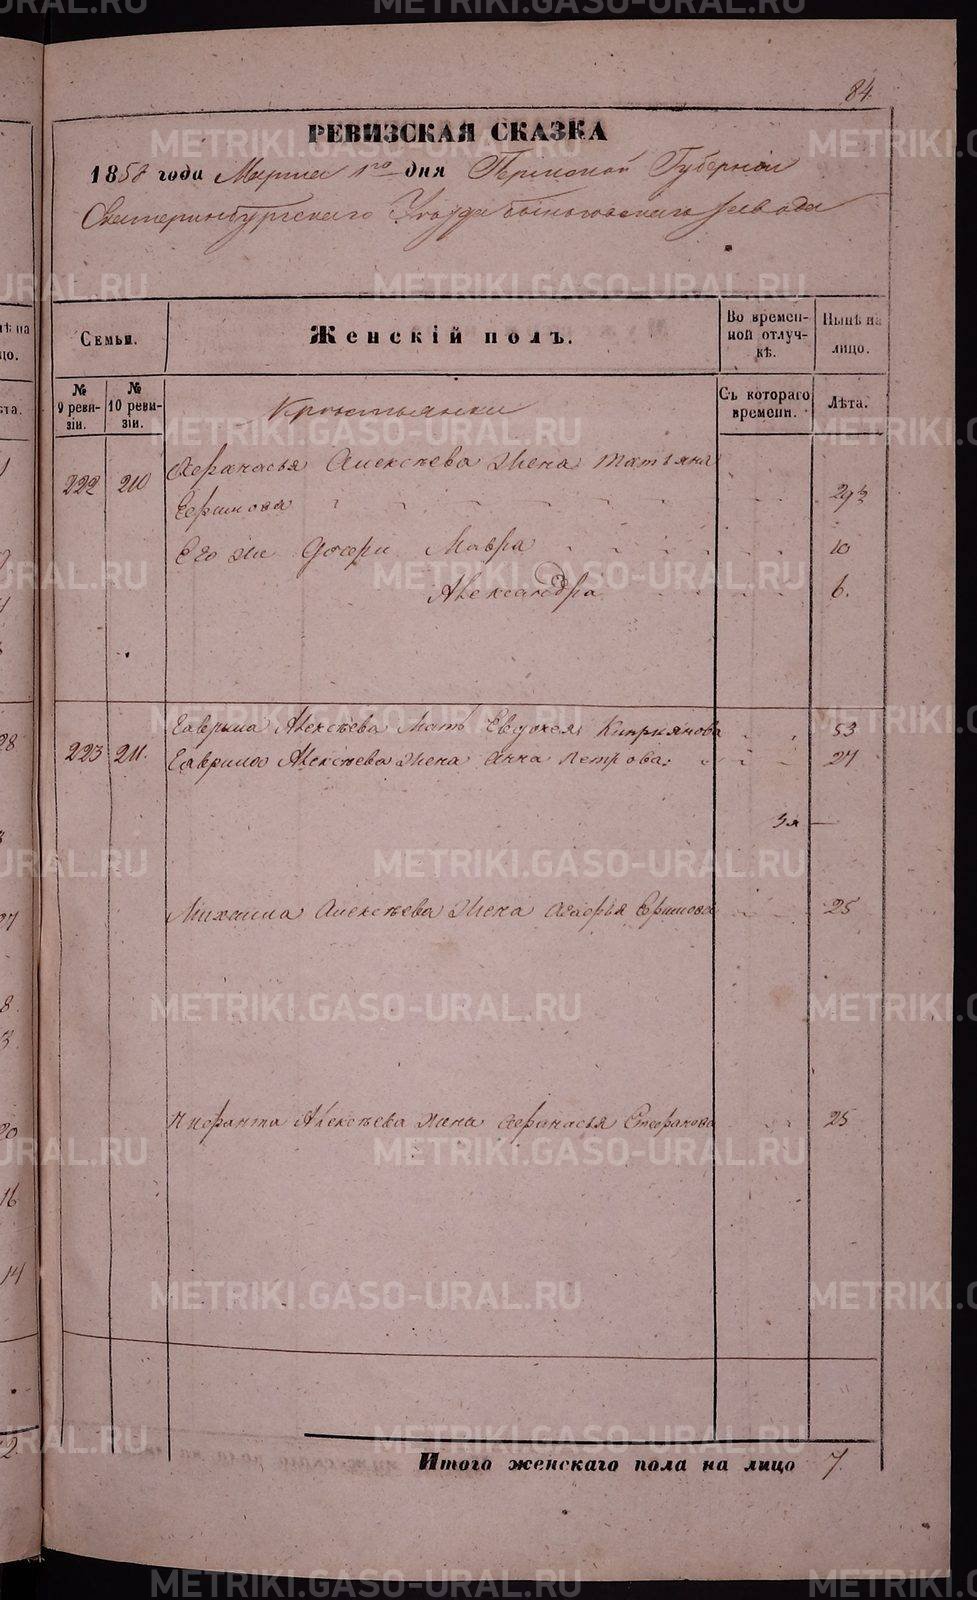 84
РЕВИЗСКАЯ СКАЗКА
1858 года Марта 1го дня Пермской Губернии
Екатеринбургскаго Уезда Быньговскаго завода
Семьи.
Женскій полъ.
Во временной отлучкѣ.
Нынѣ на лицо.
№ 9 ревизіи.
№ 10 ревизіи.
Съ котораго времени.
Лѣта.
Крестьянки
222 210 Афанасья Алексѣева Жена Татьяна
Ефимова 29½
Его же Дочери Мавра 10
Александра 6.
Гаврила Алексѣева Мать Евдокея Киприянова 53
223 211. Гаврила Алексѣева Жена Анна Петрова 27
3я
Михаила Алексѣева Жена Агафья Ефимова 25
Ниоранта Алексѣева Жена Афанасья Стефанова 25
Итого женскаго пола на лицо 7.
METRIKI.GASO-URAL.RU